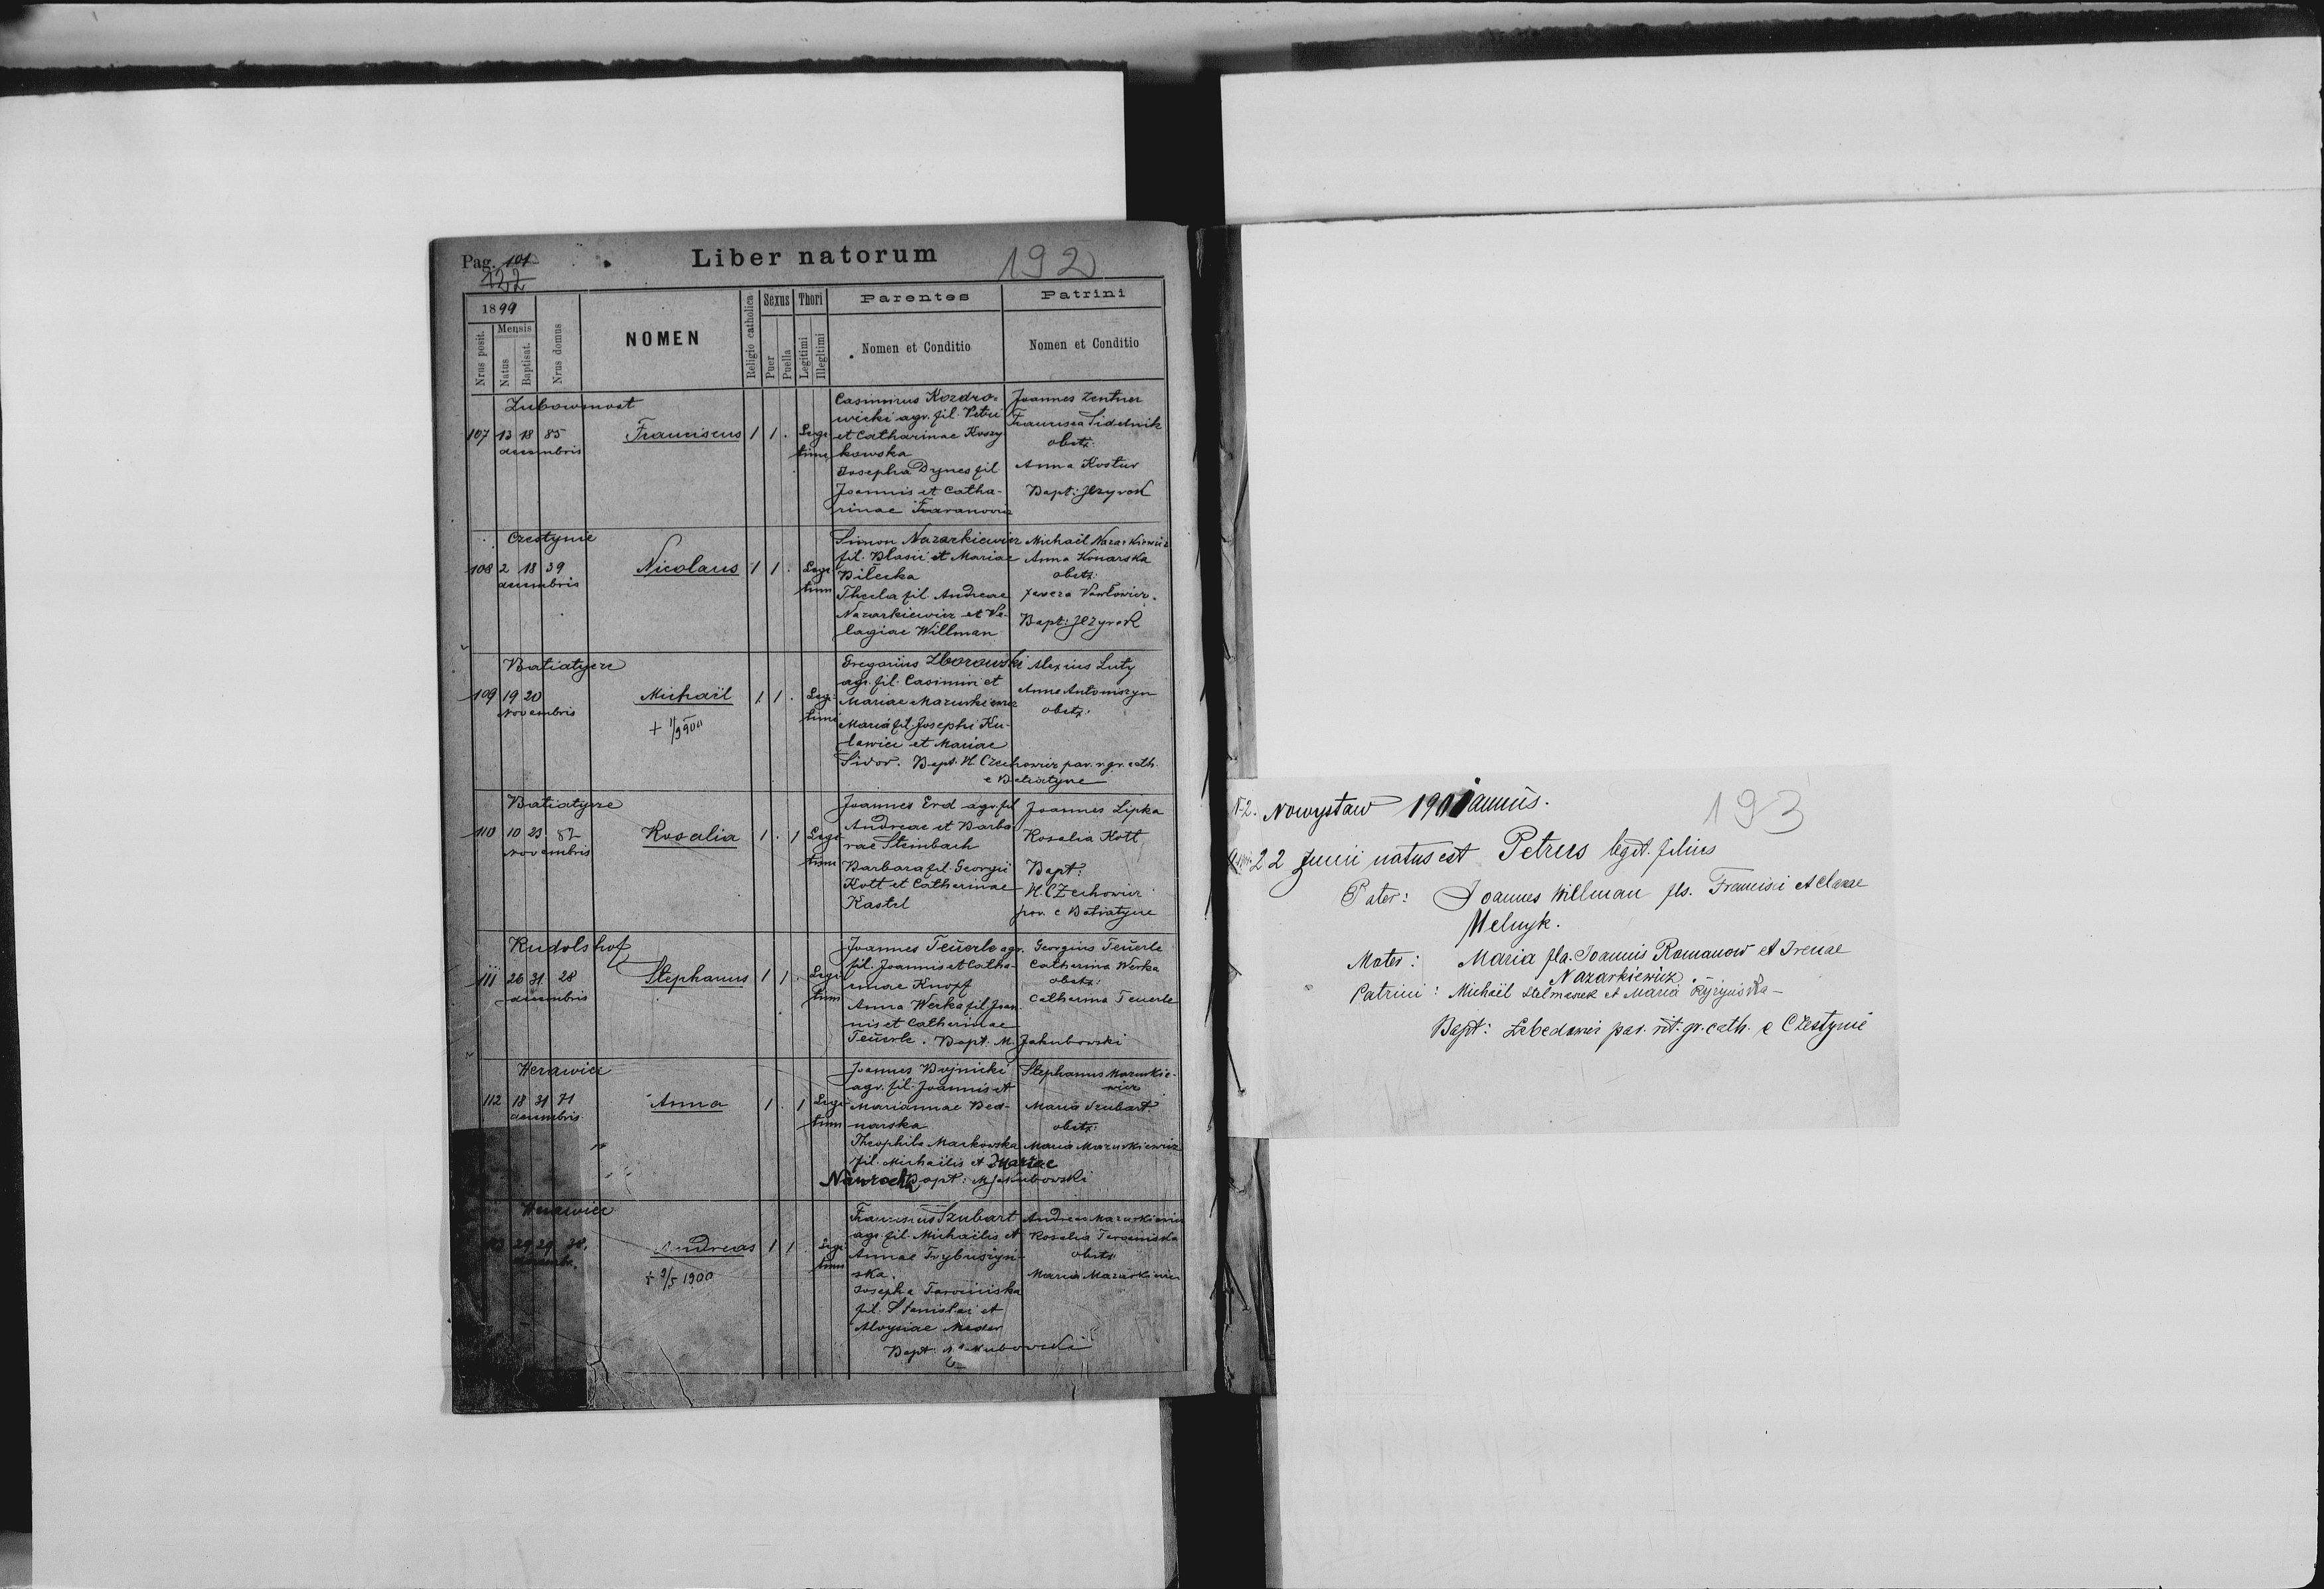 Pag. 101
122
Liber natorum
192
1899
Nrus posit.
Mensis
Natus
Baptisat.
Nrus domus
NOMEN
Religio catholica
Sexus
Puer
Puella
Thori
Legitimi
Illegitimi
Parentes
Nomen et Conditio
Patrini
Nomen et Conditio
Zubowmost
107 13 18 85
decembris
Franciscus 1 1 . Legi
timi
Casimirus Kozdro-
wicki agr. fil. Petri
et Catharinae Koszy
kowska
Josepha Dynes fil
Joannis et Catha-
rinae
Joannes Zentner
Francisca Sidelnik
obstz:
Anna Kostur
Bapt: Jezyrek
Czestynie
108 2 18 39
decembris
Nicolaus 1 1 . Legi
timi
Simon Nazarkiewicz
fil. Blasii et Mariae
Bilecka
Thecla fil. Andreae
Nazarkiewicz et Pe-
lagiae Willman
Michaël Nazarkiewicz
Anna Konarska
obstz:
Pawlowicz.
Bapt: Jezyrek
Batiatyze
109 19 20
Novembris
Michaël 1 1 . Legi-
timi
Gregorius Zborowski
agr. fil. Casimiri et
Mariae Mazurkiewicz
Maria fil. Josephi Ku-
lawice et Mariae
Sidor. Bapt. H. Czechowicz par. r. gr. cath.
e Batiatyze
Alexius Luty
Anna Antoniszyn
obstz.
Batiatyze
110 10 23 52
Novembris
Rosalia 1 . 1 Legi
timi
Joannes Erd agr. fil
Andreae et Barba
rae Steinbach
Barbara fil. Georgii
Kott et Catharinae
Kastel
Joannes Lipka
Rosalia Kott
Bapt:
H. Czechowicz
par. e Batiatyze
Rudolshof
111 26 31 28
decembris
Stephanus 1 1 . Legi
timi
Joannes Teuerle agr.
fil. Joannis et Catha-
rinae Knopf
Anna Werka fil. Joan
nis et Catharinae
Teuerle. Bapt: M. Jakubowski
Georgius Teuerle
Catharina Werka
obstz:
Catharina Teuerle
Werawice
112 18 31 71
decembris
Anna 1 . 1 Legi
timi
Joannes Bojnicki
agr. fil. Joannis et
Mariannae Bed-
narska
Theophila Markowska
fil. Michaëlis et Mariae
Nawrocka Bapt: M Jakubowski
Stephanus Mazurkie-
wicz
Maria Szubart
obstz:
Maria Mazurkiewicz
Werawice
29 29 38.
Andreas 1 1 . Legi
timi
+ 9/5 1900
Franciscus Szubart
agr. fil. Michaëlis et
Annae Trybuszyn-
ska.
Josepha Tarocinska
fil. Stanislai et
Aloysiae Meder
Bapt:
Andreas Mazurkiewicz
Rosalia Tarocinska
obstz:
Maria Mazurkiewicz
N-2. Nowystaw 1901 annus.
193
22 Junii natus est Petrus legit. filius
Pater: Joannes Willman fls. Francisci et Clarae
Melnyk.
Mater: Maria fla. Joannis Romanow et Irenae
Nazarkiewicz.
Patrini: Michaël Stelmaszek et Maria
Bapt: Lebedowicz par. rit. gr. cath. e Czestynie